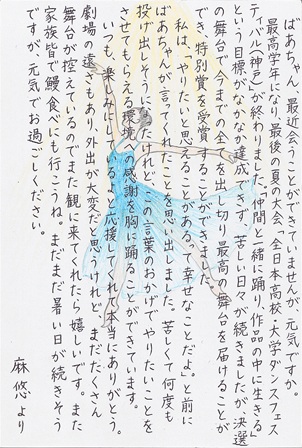 ばあちゃん、最近会うことができていませんが、元気ですか。
最高学年になり、最後の夏の大会、全日本高校・大学ダンスフェス
ティバル(神戸)が終わりました。仲間と一緒に踊り、作品の中に生きる
という目標がなかなか達成できず、苦しい日々が続きましたが、決選
の舞台で今までの全てを出し切り最高の舞台を届けることが
でき、特別賞を受賞することができました。
私は、「やりたいと思えることがあるって幸せなことだよ」と前に
ばあちゃんが言ってくれたことを思い出しました。苦しくて何度も
投げ出しそうになったけれど、この言葉のおかげでやりたいことを
させてもらえる環境への感謝を胸に踊ることができています。
いつも、楽しみにしているよと応援してくれて本当にありがとう。
劇場の遠さもあり、外出が大変だと思うけれど、まだたくさん
舞台が控えているのでまた観に来てくれたら嬉しいです。また
家族皆で鰻食べにも行こうね。まだまだ暑い日が続きそう
ですが、元気でお過ごしください。
麻悠より